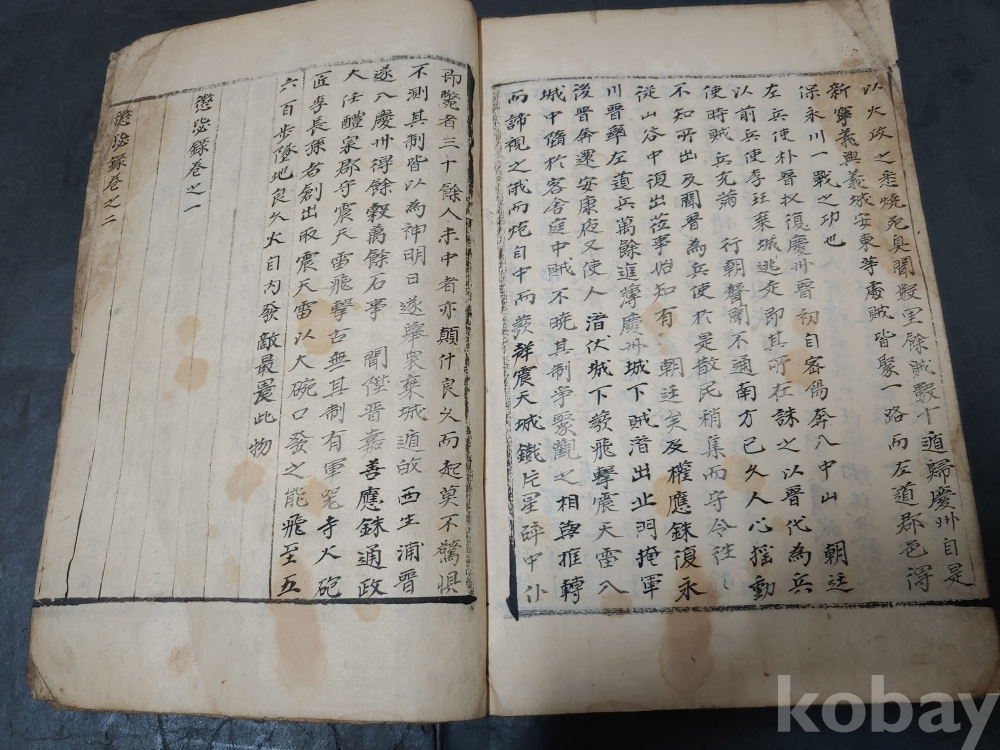 以火攻之悉燒死臭聞數里餘賊數十遁歸慶州自是
新寧義興義城安東等處賊皆聚一路而左道郡邑得
保永川一戰之功也
左兵使朴晉收復慶州晉初自密陽奔入中山 朝廷
以前兵使李珏棄城逃走即其所在誅之以晉代為兵
使時賊兵充滿 行朝聲聞不通南方已久人心搖動
不知所出及聞晉為兵使於是散民稍集而守令往〻
從山谷中復出莅事始知有 朝廷矣及權應銖復永
川晉率左道兵萬餘進薄慶州城下賊潛出北門掩軍
後晉奔還安康夜又使人潛伏城下發飛擊震天雷入
城中墮於客舍庭中賊不曉其制爭聚觀之相與推轉
而諦視之俄而炮自中而發聲震天城鐵片星碎中仆
即斃者三十餘人未中者亦顛仆良久而起莫不驚惧
不測其制皆以為神明日遂舉衆棄城遁歸西生浦晉
遂入慶州得餘穀萬餘石事 聞陞晉嘉善應銖通政
大任醴泉郡守震天雷飛擊古無其制有軍器寺火砲
匠李長孫者創出取震天雷以大碗口發之能飛至五
六百步墜地良久火自內發敵最畏此物
懲毖錄卷之一
懲毖錄卷之二
kobay